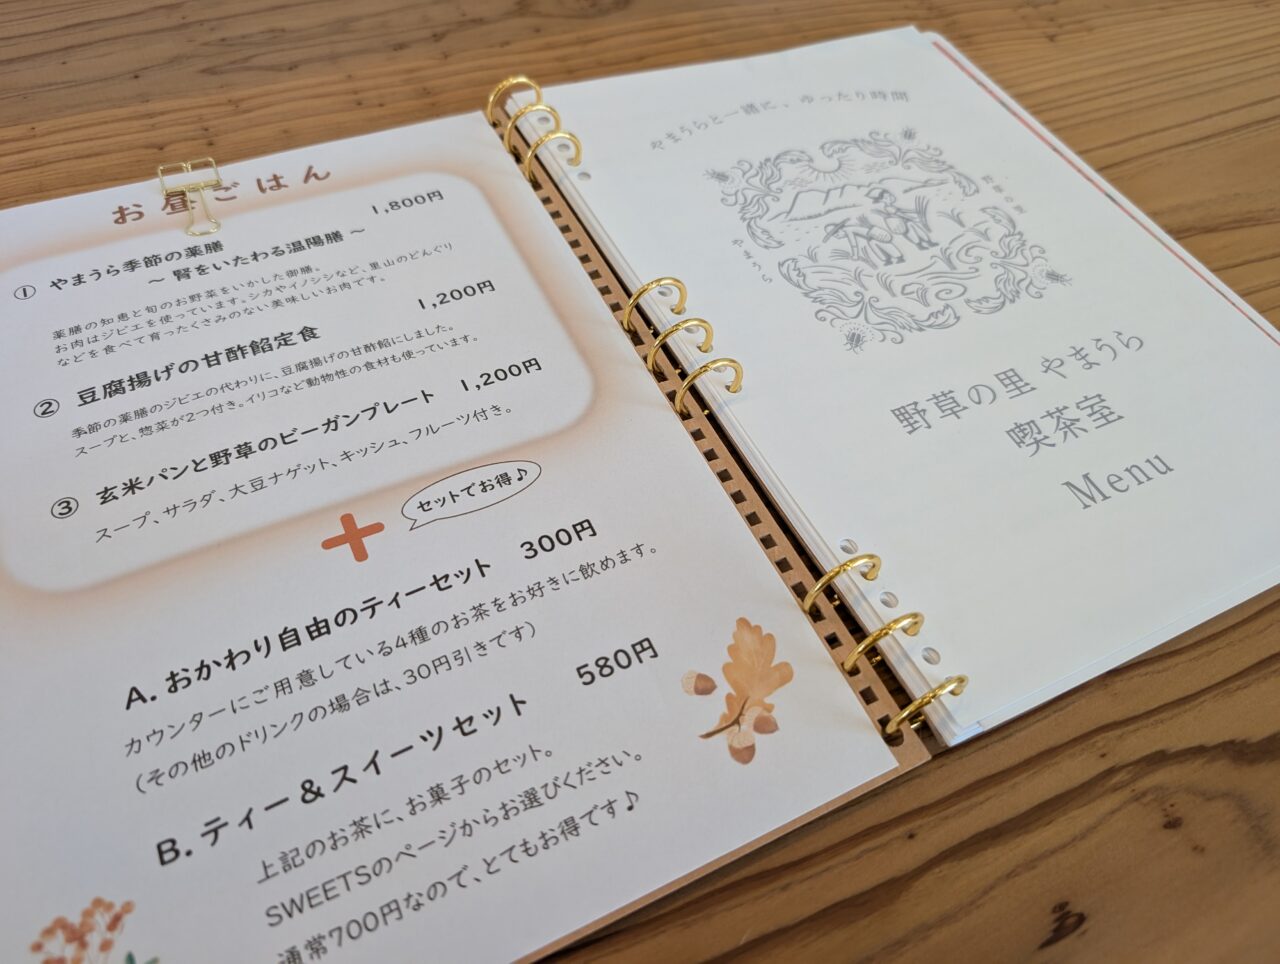 お昼ごはん
① やまうら季節の薬膳
～ 腎をいたわる温陽膳 ～
1,800円
薬膳の知恵と旬のお野菜をいかした御膳。
お肉はジビエを使っています。シカやイノシシなど、里山のどんぐり
などを食べて育ったくさみのない美味しいお肉です。
② 豆腐揚げの甘酢餡定食 1,200円
季節の薬膳のジビエの代わりに、豆腐揚げの甘酢餡にしました。
スープと、惣菜が2つ付き。イリコなど動物性の食材も使っています。
③ 玄米パンと野草のビーガンプレート 1,200円
スープ、サラダ、大豆ナゲット、キッシュ、フルーツ付き。
+
セットでお得♪
A. おかわり自由のティーセット 300円
カウンターにご用意している4種のお茶をお好きに飲めます。
（その他のドリンクの場合は、30円引きです）
B. ティー＆スイーツセット 580円
上記のお茶に、お菓子のセット。
SWEETSのページからお選びください。
通常700円なので、とてもお得です♪
やまうらと一緒に、ゆったり時間
野草の里
やまうら
野草の里 やまうら
喫茶室
Menu